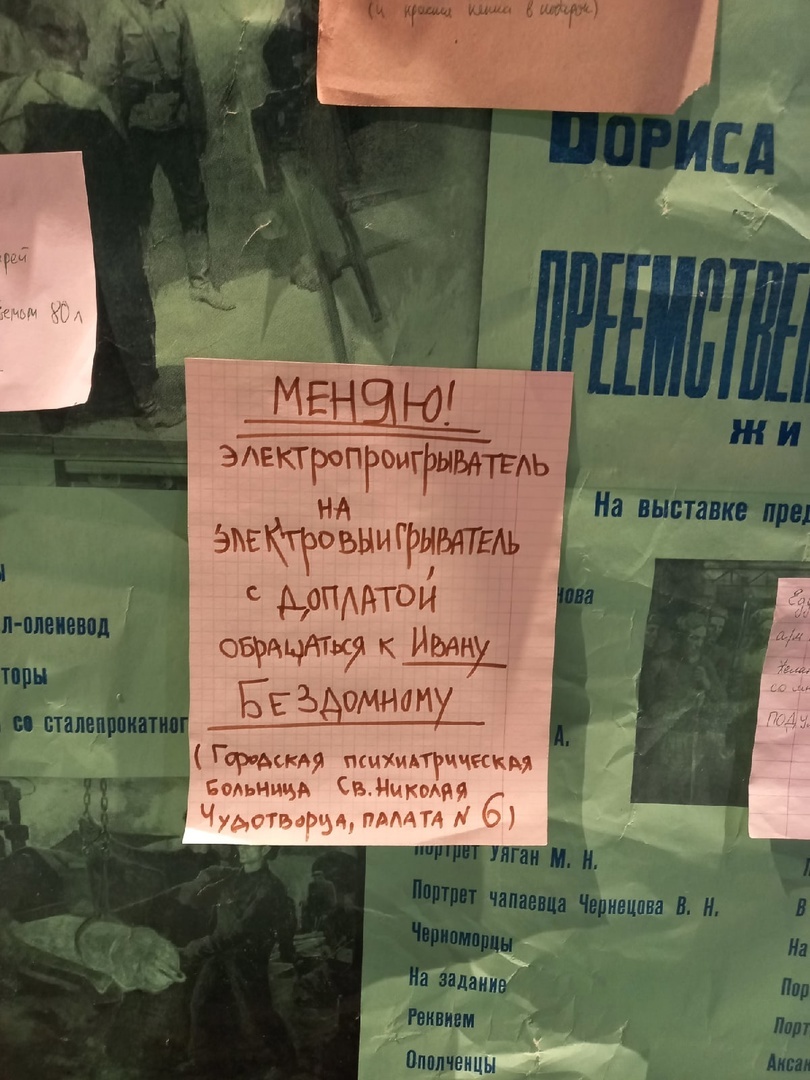 (и красная кепка в подарок)
БОРИСА
рей
ъемом 80 л
ПРЕЕМСТВЕН
ЖИ
МЕНЯЮ!
ЭЛЕКТРОПРОИГРЫВАТЕЛЬ
НА
ЭЛЕКТРОВЫИГРЫВАТЕЛЬ
С ДОПЛАТОЙ
ОБРАЩАТЬСЯ К ИВАНУ
БЕЗДОМНОМУ
(ГОРОДСКАЯ ПСИХИАТРИЧЕСКАЯ
БОЛЬНИЦА СВ. НИКОЛАЯ
ЧУДОТВОРЦА, ПАЛАТА N 6)
На выставке пред
нова
ы
л-оленевод
торы
со сталепрокатног
А.
со
Портрет Уяган М. Н.
Портрет чапаевца Чернецова В. Н.
Черноморцы
На задание
Реквием
Ополченцы
В
На
Пор
Порт
Аксак